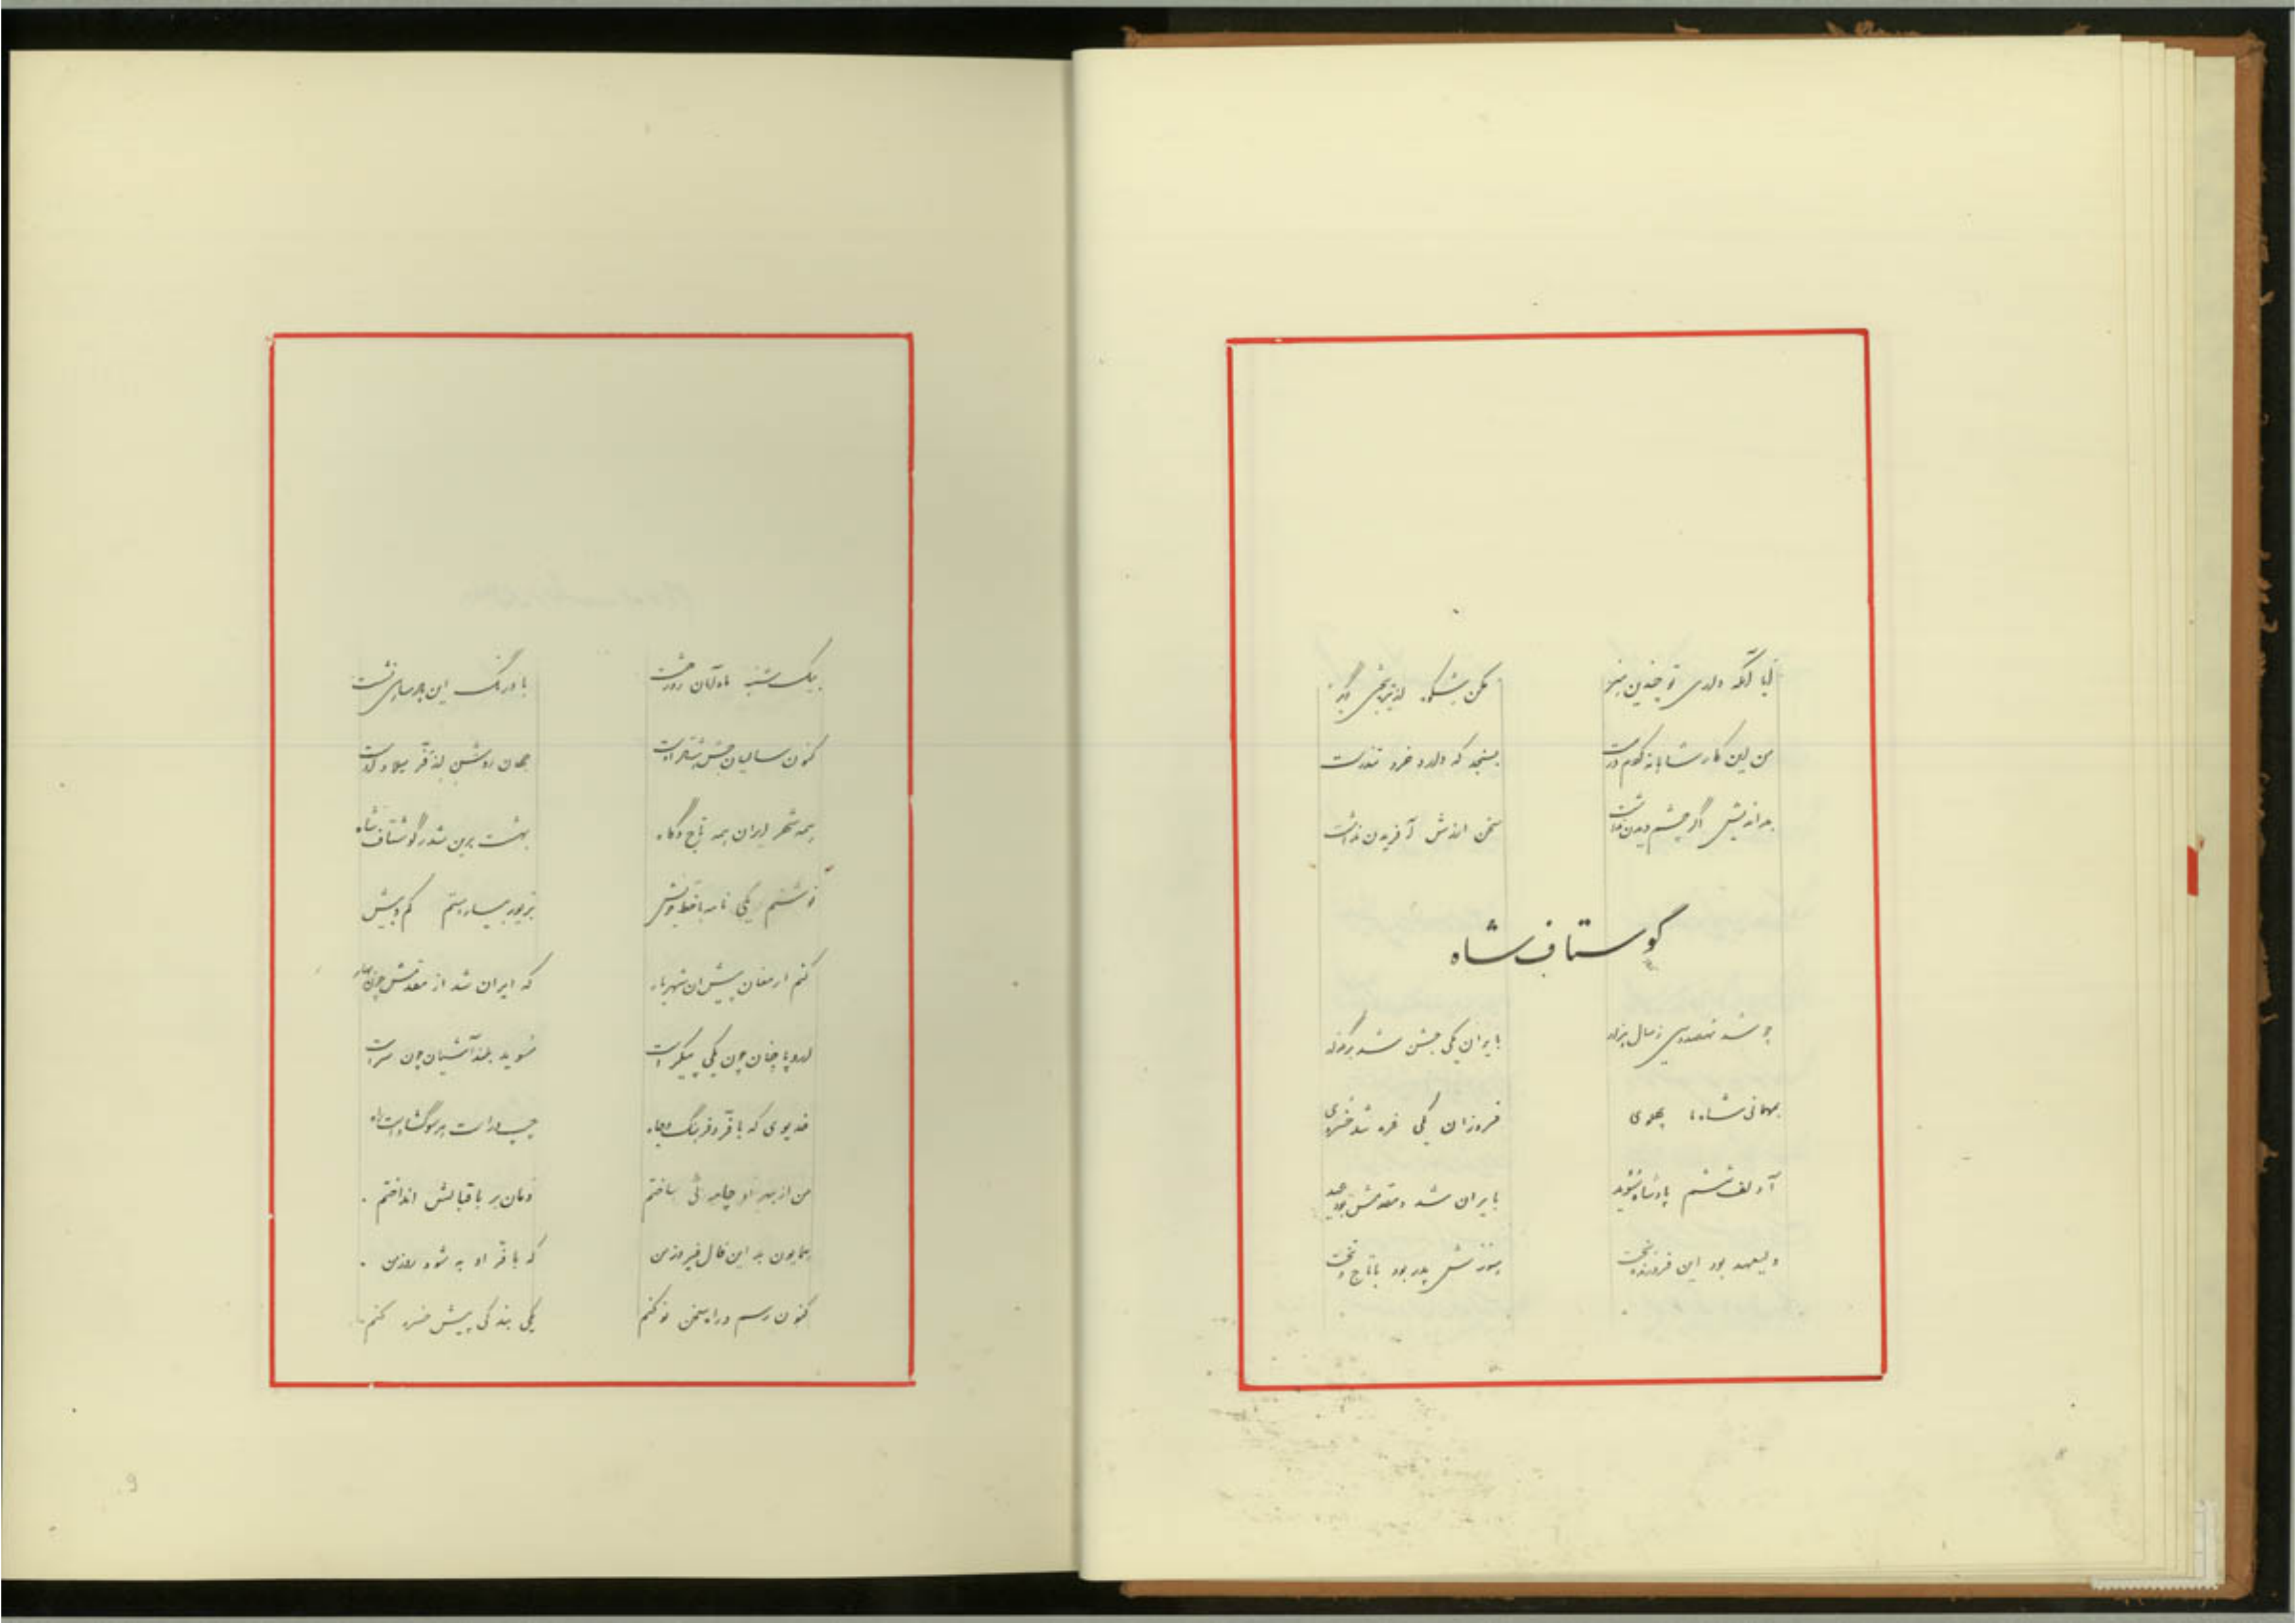 آیا آنکه داری تو چندین هنر مکن شکوه از تیره بختی دگر
من این کار شاهانه کردم درست بسنجد که دارد خرد تندرست
بداندیش اگر چشم دیدن نداشت سخن ارزش آفریدن نداشت
گوستاف شاه
چو شد نهصد و سی ز سال هزار بایران یکی جشن شد برگزار
بمهمانی شاه ما پهلوی فروزان یکی فره شد خسروی
آدلف ششم پادشاه سوید بایران شد و مقدمش بود عید
ولیعهد بود این فروزنده بخت هنوزش پدر بود با تاج و تخت
بیک شنبه ماه آبان روز هشت با درنگ این پارسای نشست
کنون سالیان جشن شاهانه است جهان روشن از فر میلاد اوست
همه شهر ایران همه تاج و گاه بهشت برین شد ز گوستاف شاه
نوشتم یکی نامه با خط خویش بزیور بیاراستم کم و بیش
کنم ارمغان پیش آن شهریار که ایران شد از مقدمش چون بهار
اروپا چنان چون یکی پیکر است سوید بلند آشیان چون سر است
خدیوی که با فر و فرهنگ و جاه چپ و راست هر سو گشاده است راه
من از بهر او چامه ئی ساختم دمان بر باقبالش انداختم
همایون به این فال فیروز من که با فر او به شود روز من
کنون رسم و راه سخن نو کنم یکی بندگی پیش خسرو کنم
9